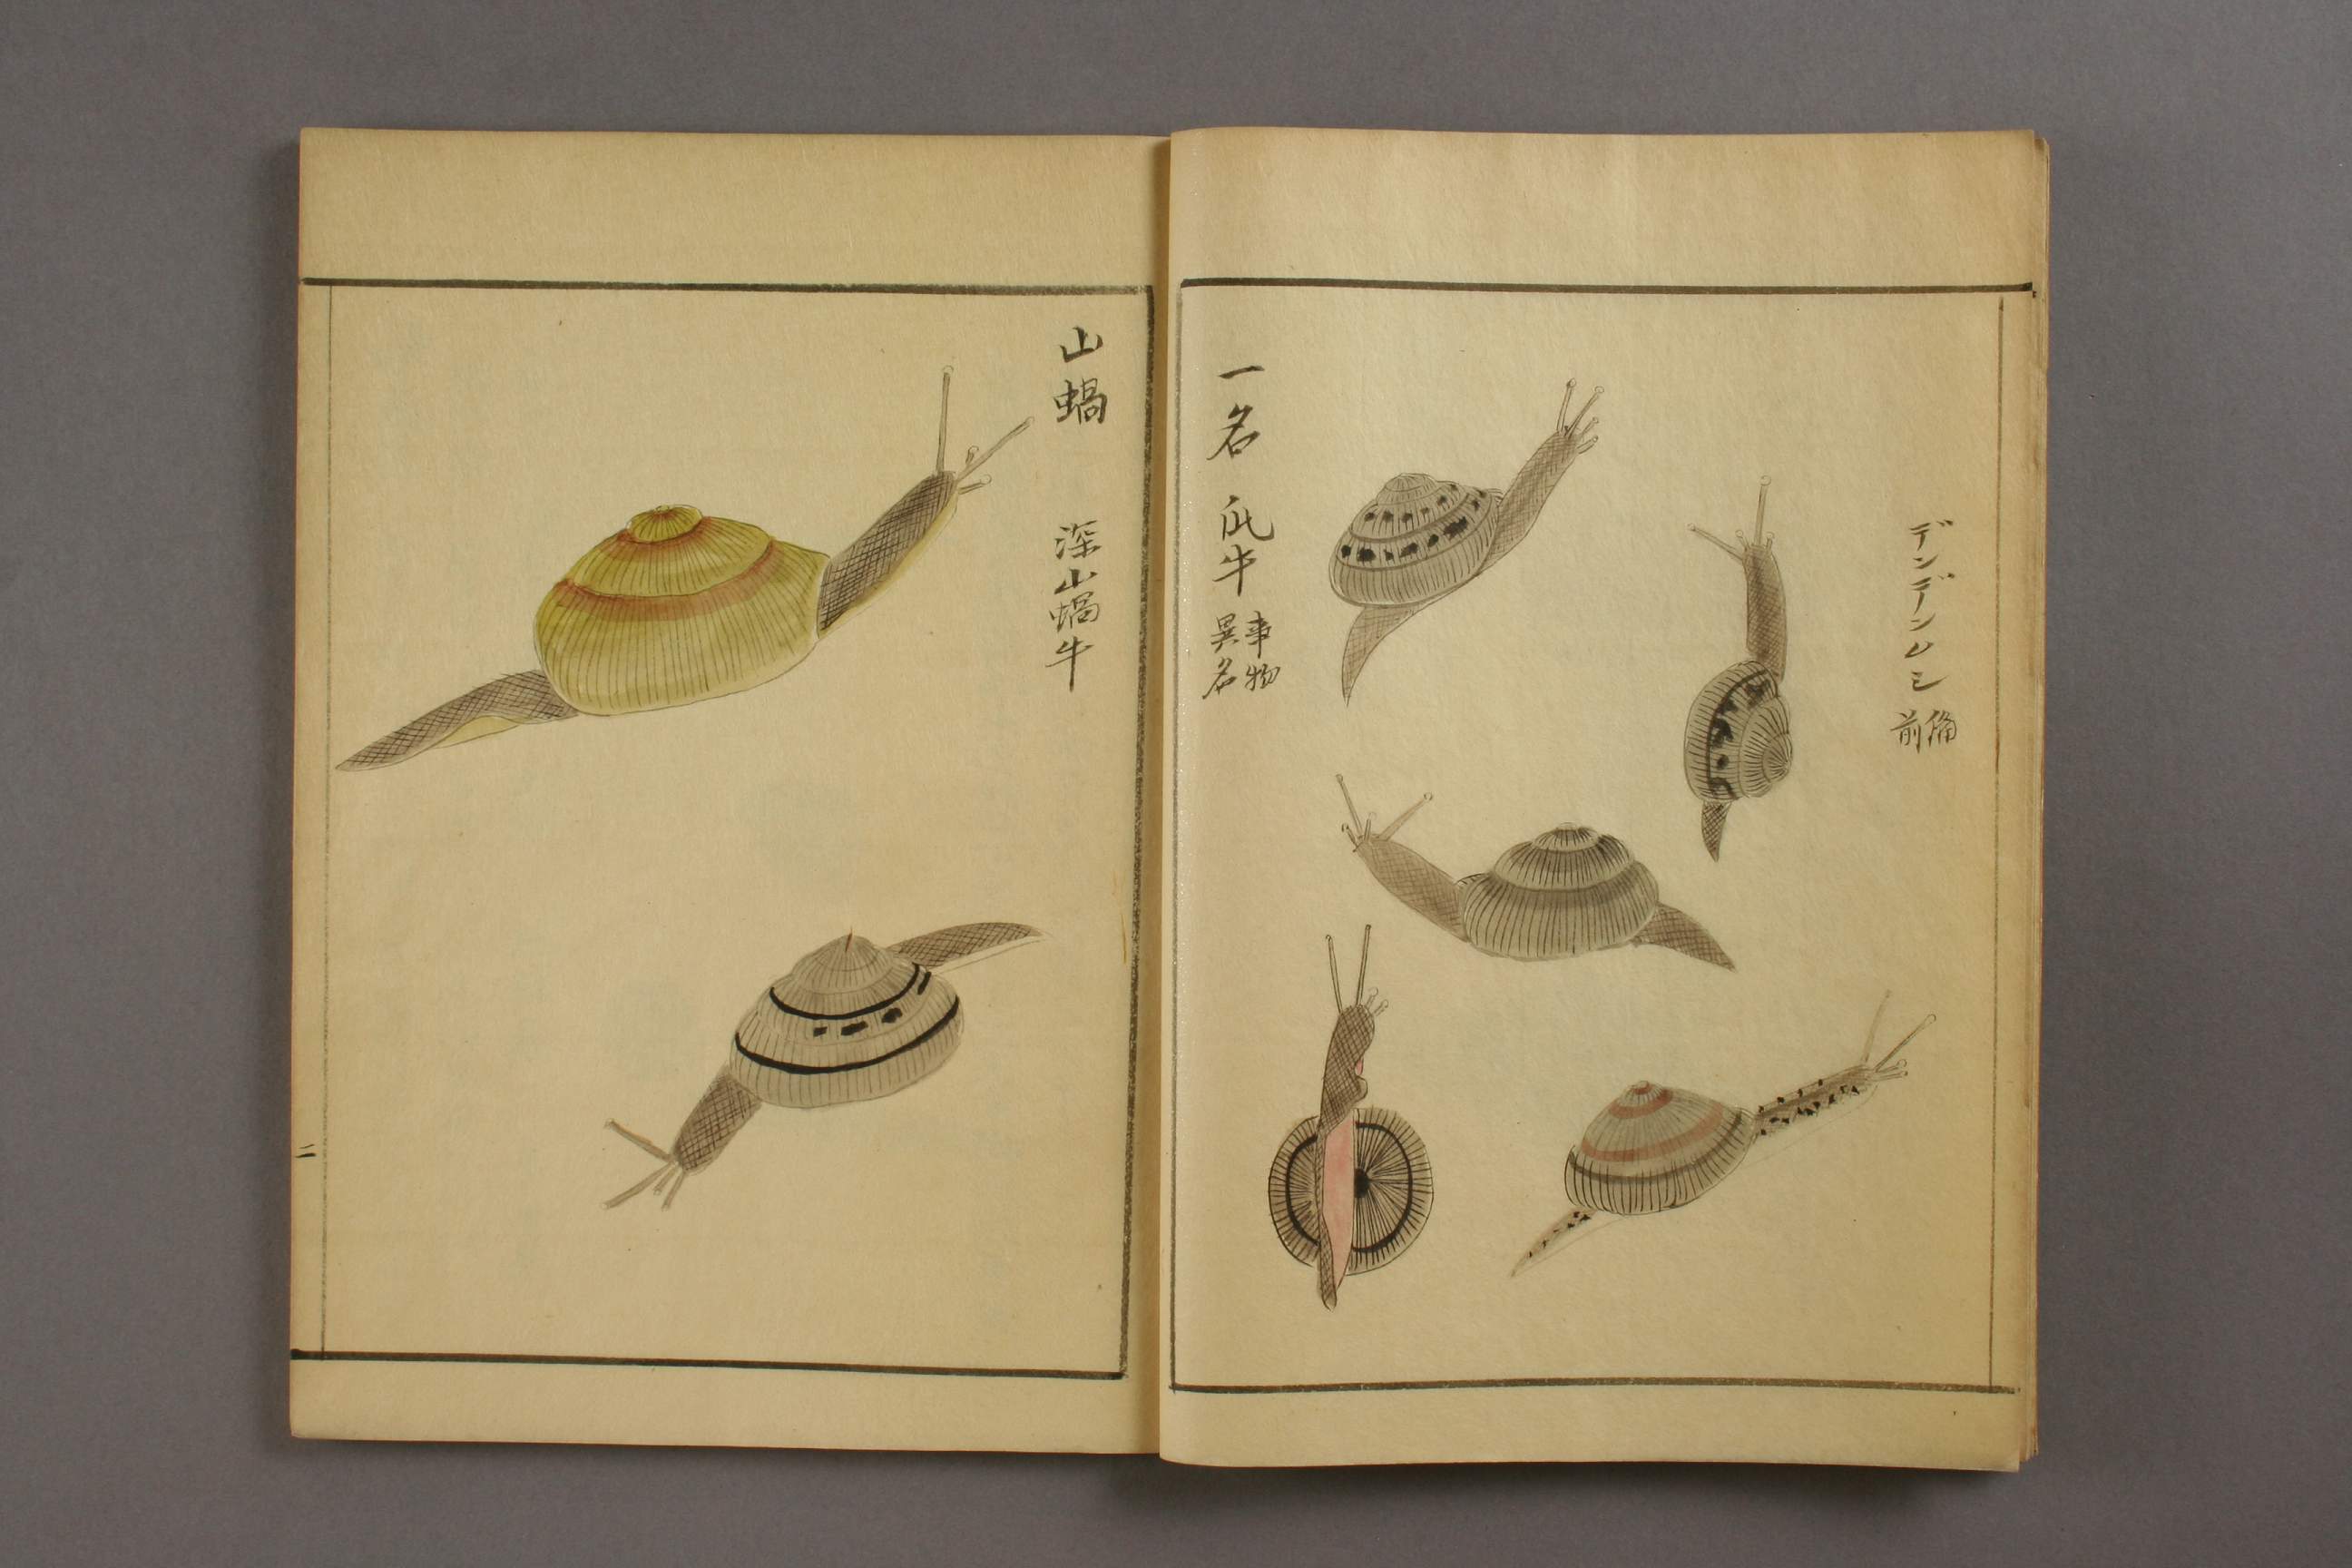 デンデンムシ 備前
一名 㼋牛 事物異名
山蝸 深山蝸牛
二